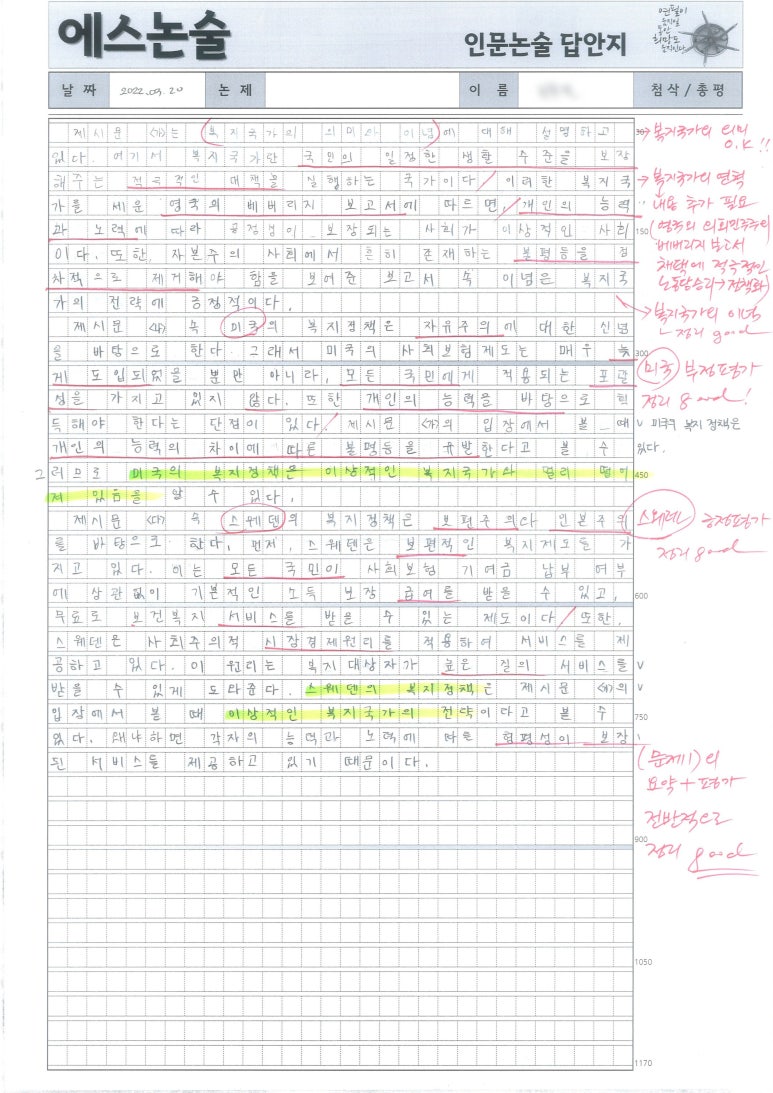 에스논술
인문논술 답안지
날 짜
2022.09.20
논 제
이 름
첨삭/총평
제시문 <가>는 복지국가의 의미와 이념에 대해 설명하고
있다. 여기서 복지국가란 국민의 일정한 생활 수준을 보장
해주는 적극적인 대책을 실행하는 국가이다. 이러한 복지국
가를 세운 영국의 베버리지 보고서에 따르면, 개인의 능력
과 노력에 따라 공정성이 보장되는 사회가 이상적인 사회
150
이다. 또한, 자본주의 사회에서 흔히 존재하는 불평등을 점
차적으로 제거해야 함을 보여준 보고서 속 이념은 복지국
가의 전략에 긍정적이다.
제시문 <나> 속 미국의 복지정책은 자유주의에 대한 신념
을 바탕으로 한다. 그래서 미국의 사회보험제도는 매우 늦
300
게 도입되었을 뿐만 아니라, 모든 국민에게 적용되는 포괄
성을 가지고 있지 않다. 또한 개인의 능력을 바탕으로 획
득해야 한다는 단점이 있다. 제시문 <가>의 입장에서 볼 때
V 미국의 복지 정책은
개인의 능력의 차이에 따른 불평등을 유발한다고 볼 수
있다.
그러므로 미국의 복지정책은 이상적인 복지국가와 멀리 떨어
450
져 있음을 알 수 있다.
제시문 <다> 속 스웨덴의 복지정책은 보편주의와 인본주의
를 바탕으로 한다. 먼저, 스웨덴은 보편적인 복지제도를 가
지고 있다. 이는 모든 국민이 사회보험 기여금 납부 여부
에 상관없이 기본적인 소득 보장 급여를 받을 수 있고,
600
무료로 보건복지 서비스를 받을 수 있는 제도이다. 또한,
스웨덴은 사회주의적 시장경제원리를 적용하여 서비스를 제
공하고 있다. 이 원리는 복지대상자가 높은 질의 서비스를 V
받을 수 있게 도와준다. 스웨덴의 복지정책은 제시문 <가>의 V
입장에서 볼 때 이상적인 복지국가의 전략이다고 볼 수
750
있다. 왜냐하면 각자의 능력과 노력에 따른 형평성이 보장
된 서비스를 제공하고 있기 때문이다.
900
1050
1170
복지국가의 의미
O.K!!
복지국가의 연혁
내용 추가 필요
(영국의 의회민주주의
베버리지 보고서
채택에 적극적인
노동당승리→정책화)
복지국가의 이념
정리 good
미국 부정평가
정리 good!
스웨덴 긍정평가
정리 good
(문제1)의
요약 + 평가
전반적으로
정리 good